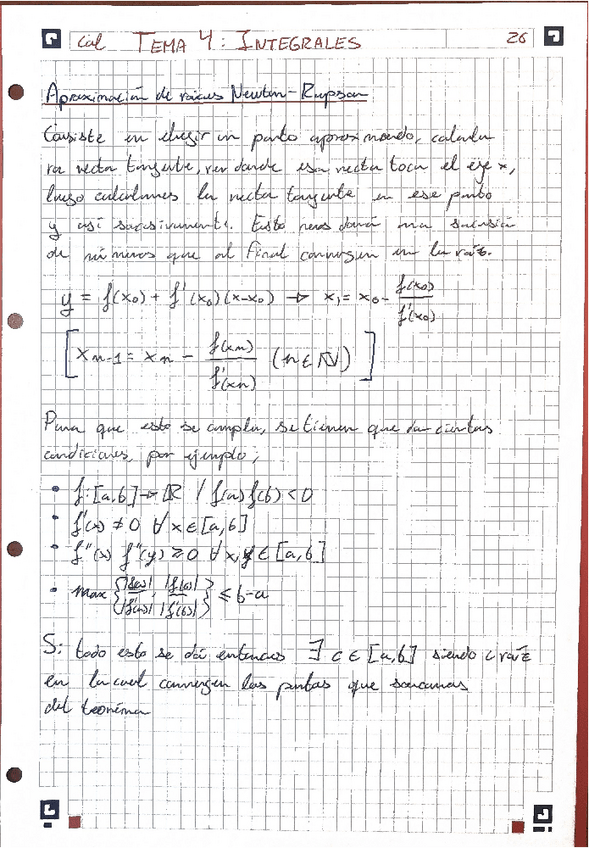 Cal TEMA 4: INTEGRALES 26
Aproximación de raíces Newton-Rapson
Consiste en elegir un punto aproximando, calcular
la recta tangente, ver donde esa recta toca el eje x,
luego calculamos la recta tangente en ese punto
y así sucesivamente. Esto nos dará una sucesión
de números que al final convergen en la raíz.
y = f(x₀) + f'(x₀)(x-x₀) → x₁ = x₀ - f(x₀)/f'(x₀)
[x_{n-1} = x_n - f(x_n)/f'(x_n) (n∈ℕ)]
Para que esto se cumpla, se tienen que dar ciertas
condiciones, por ejemplo;
• f:[a,b]→ℝ / f(a)f(b)<0
• f'(x) ≠ 0 ∀x∈[a,b]
• f''(x) f''(y) ≥ 0 ∀x,y∈[a,b]
• max {|f(a)|/|f'(a)|, |f(b)|/|f'(b)|} ≤ b-a
Si todo esto se dá entonces ∃ c∈[a,b] siendo c raíz
en la cual convergen los puntos que sacamos
del teoréma